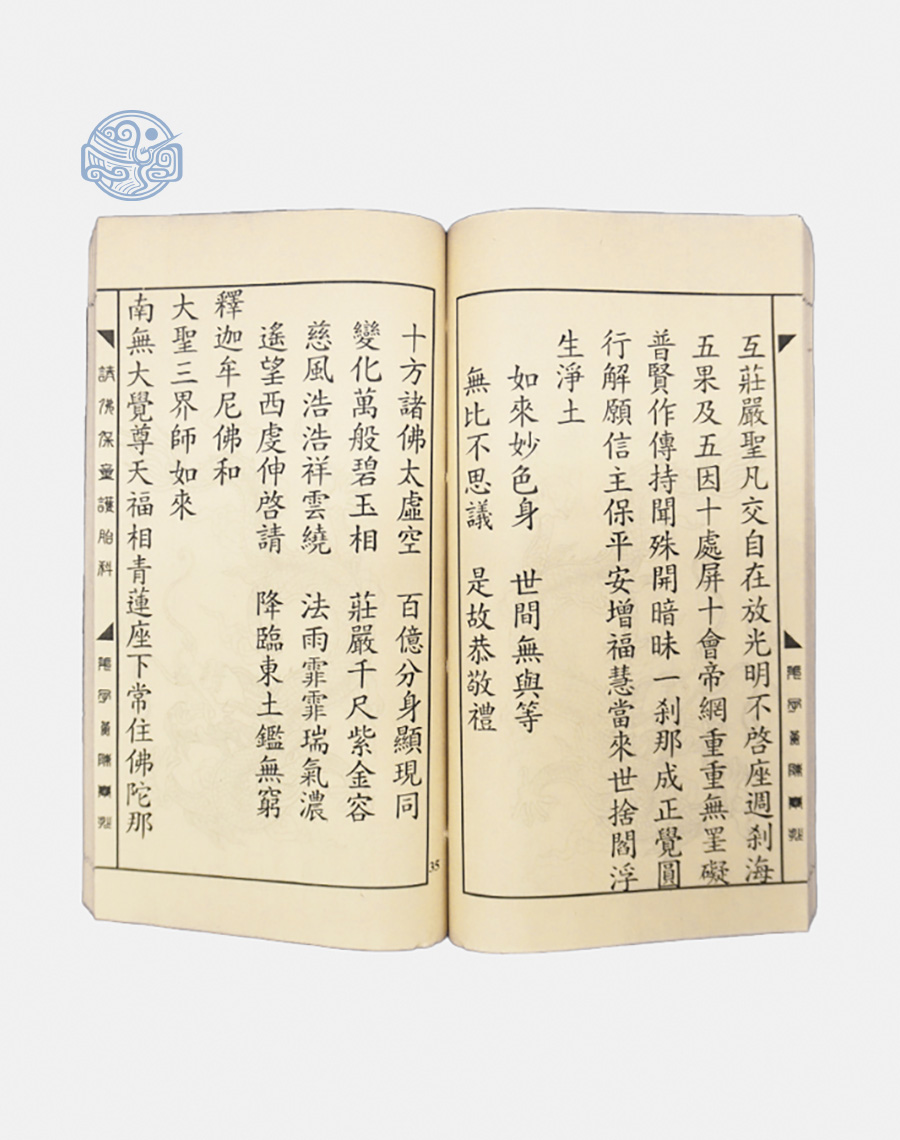 互莊嚴聖凡交自在放光明不啓座週剎海
五果及五因十處屏十會帝網重重無罣礙
普賢作傳持聞殊開暗昧一刹那成正覺圓
行解願信主保平安增福慧當來世捨閻浮
生淨土
如來妙色身 世間無與等
無比不思議 是故恭敬禮
十方諸佛太虛空 百億分身顯現同
變化萬般碧玉相 莊嚴千尺紫金容
慈風浩浩祥雲繞 法雨霏霏瑞氣濃
遙望西虔伸啓請 降臨東土鑑無窮
釋迦牟尼佛和
大聖三界師如來
南無大覺尊天福相青蓮座下常住佛陀那
請佛保童護胎科
35